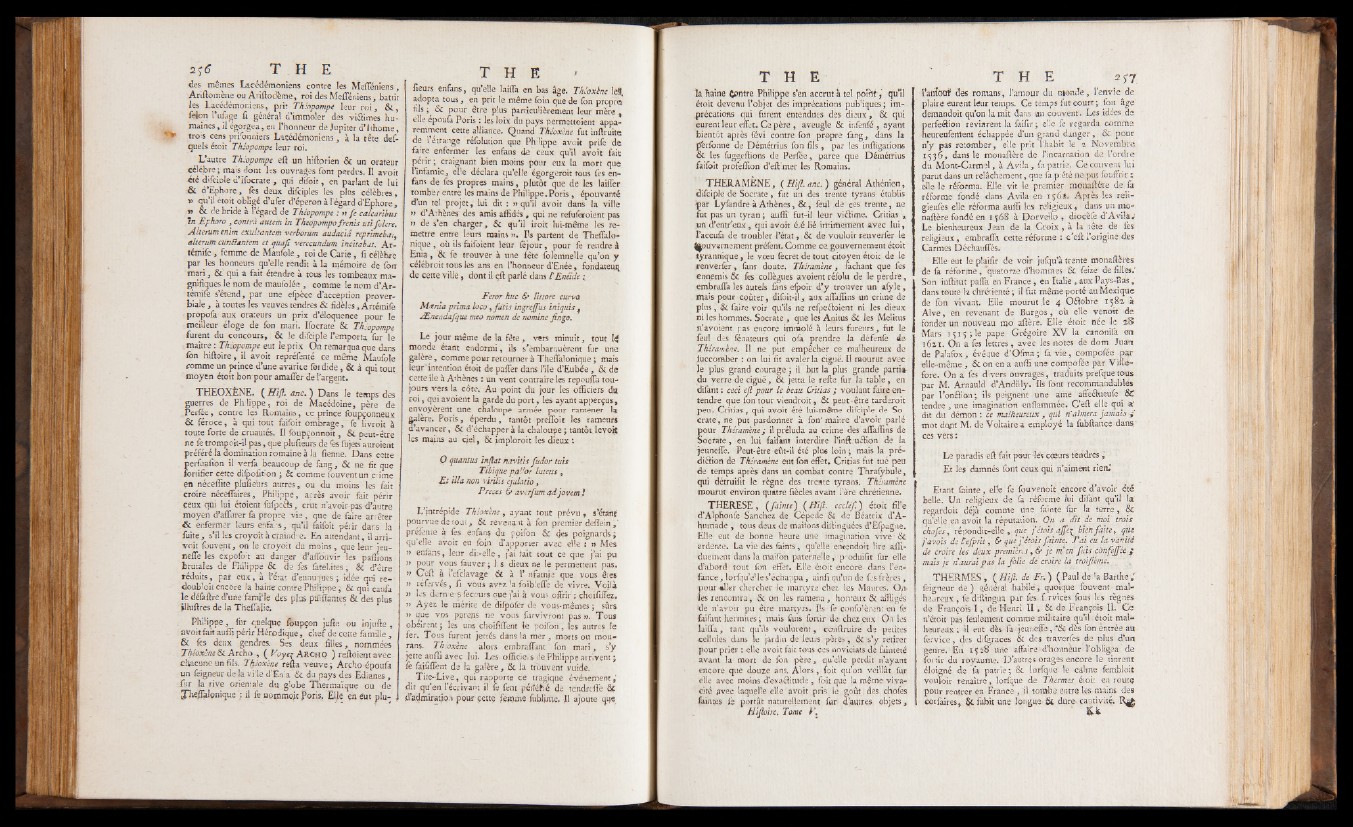 256 T H E
des mêmes Lacédémoniens contre les Meſſéniens,
Ariſtomène ou Ariſtodème, roi des Meſſéniens, battit
les Lacédémoniens, prit Théopompe leur roi, &,
ſelon l'uſage ſi général d'immoler des victimes hu-
maines, il égorgea, en l'honneur de Jupiter d'Ithome,
trois cens priſonniers Lacédémoniens, à la tête deſ-
quels étoit Théopompe leur roi.
L'autre Théopompe eſt un hiſtorien & un orateur
célèbre; mais dont les ouvrages ſont perdus. Il avoit
été diſciple d'Iſocrate, qui diſoit, en parlant de lui
& d'Ephore, ſes deux diſciples les plus célèbres,
» qu'il étoit obligé d'uſer d'éperon à l'égard d'Ephore,
» & de bride à l'égard de Théopompe: » ſe calcaribus
in Ephoro, contrà autem in Theopompo frenis uti ſolere.
Alterum enim exultantem verborum audaciâ reprimebat,
alterum cunctantem et quaſi verecundum incitabat. Ar-
témiſe, femme de Mauſole, roi de Carie, ſi célèbre
par les honneurs qu'elle rendit à la mémoire de ſon
mari, & qui a fait étendre à tous les tombeaux ma-
gnifiques le nom de mauſolée, comme le nom d'Ar-
témiſe s'étend, par une eſpèce d'acception prover-
biale, à toutes les veuves tendres & fidèles, Artémiſe
propoſa aux orateurs un prix d'éloquence pour le
meilleur éloge de ſon mari. Iſocrate & Théopompe
furent du concours, & le diſciple l'emporta ſur le
maître: Théopompe eut le prix. On remarqua que dans
ſon hiſtoire, il avoit repréſenté ce même Mauſole
comme un prince d'une avarice ſordide, & à qui tout
moyen étoit bon pour amaſſer de l'argent.
THEOXÈNE. (Hiſt. anc.) Dans le temps des
guerres de Philippe, roi de Macédoine, père de
Perſée, contre les Romains, ce prince ſoupçonneux
& féroce, à qui tout faiſoit ombrage, ſe livroit à
toute ſorte de cruautés. Il ſoupçonnoit, & peut-être
ne ſe trompoit-il pas, que pluſieurs de ſes ſujets auroient
préféré la domination romaine à la ſienne. Dans cette
perſuaſion il verſa beaucoup de ſang, & ne fit que
fortifier cette diſpoſition; & comme ſouvent un crime
en néceſſite pluſieurs autres, ou du moins les fait
croire néceſſaires, Philippe, après avoir fait périr
ceux qui lui étoient ſuſpects, crut n'avoir pas d'autre
moyen d'aſſurer ſa propre vie, que de faire arrêter
& enfermer leurs enfans, qu'il faiſoit périr dans la
ſuite, s'il les croyoit à craindre. En attendant, il arri-
voit ſouvent, on le croyoit du moins, que leur jeu-
neſſe les expoſoit au danger d'aſſouvir les paſſions
brutales de Philippe & de ſes ſatellites, & d'être
réduits, par eux, à l'état d'eunuques; idée qui re-
doubloit encore la haine contre Philippe, & qui cauſa
le déſaſtre d'une famille des plus puiſſantes & des plus
illuſtres de la Theſſalie.
Philippe, ſur quelque ſoupçon juſte ou injuſte,
avoit fait auſſi périr Hérodique, chef de cette famille,
& ſes deux gendres. Ses deux filles, nommées
Théoxène & Archo, (Voyez ARCHO) reſtoient avec
chacune un fils. Théoxène reſta veuve; Archo épouſa
un ſeigneur de la ville d'Enia & du pays des Edianes,
ſur la rive orientale du globe Thermaïque ou de
Theſſalonique; il ſe nommoit Poris. Elle en eut plu-
T H E
ſieurs enfans, qu'elle laiſſa en bas âge. Théoxène les
adopta tous, en prit le même ſoin que de ſon propre
fils; & pour être plus particulièrement leur mère,
elle épouſa Poris: les loix du pays permettoient appa-
remment cette alliance. Quand Théoxène fut inſtruite
de l'étrange réſolution que Philippe avoit priſe de
faire enfermer les enfans de ceux qu'il avoit fait
périr; craignant bien moins pour eux la mort que
l'infamie, elle déclara qu'elle égorgeroit tous ſes en-
fans de ſes propres mains, plutôt que de les laiſſer
tomber entre les mains de Philippe. Poris, épouvanté
d'un tel projet, lui dit: » qu'il avoit dans la ville
» d'Athènes des amis affidés, qui ne refuſeroient pas
» de s'en charger, & qu'il iroit lui-même les re-
mettre entre leurs mains ». Ils partent de Theſſalo-
nique, où ils faiſoient leur ſéjour, pour ſe rendre à
Enia, & ſe trouver à une fête ſolemnelle qu'on y
célébroit tous les ans en l'honneur d'Enée, fondateur
de cette ville, dont il eſt parlé dans l'Enéide:
Feror huc & littore curvo
Mœnia prima loco, fatis ingreſſus iniquis,
Æneadaſque meo nomen de nomine fingo.
Le jour même de la fête, vers minuit, tout le
monde étant endormi, ils s'embarquèrent ſur une
galère, comme pour retourner à Theſſalonique; mais
leur intention étoit de paſſer dans l'île d'Eubée, & de
cette île à Athènes: un vent contraire les repouſſa tou-
jours vers la côte. Au point du jour les officiers du
roi, qui avoient la garde du port, les ayant apperçus,
envoyèrent une chaloupe armée pour ramener la
galère. Poris, éperdu, tantôt preſſoit les rameurs
d'avancer, & d'échapper à la chaloupe; tantôt levoit
les mains au ciel, & imploroit les dieux:
O quantus inſtat navitis ſudor tuis
Tibique pallor luteus,
Et illa non virilis ejulatio,
Preces & averſum ad jovem!
L'intrépide Théoxène, ayant tout prévu, s'étant
pourvue de tout, & revenant à ſon premier deſſein,
préſente à ſes enfans du poiſon & des poignards;
qu'elle avoit eu ſoin d'apporter avec elle: » Mes
» enfans, leur dit-elle, j'ai fait tout ce que j'ai pu
» pour vous ſauver; les dieux ne le permettent pas.
» C'eſt à l'eſclavage & à l'infamie que vous êtes
» réſervés, ſi vous avez la foibleſſe de vivre. Voilà
» les derniers ſecours que j'ai à vous offrir; choiſiſſez.
» Ayez le mérite de diſpoſer de vous-mêmes; sûrs
» que vos parens ne vous ſurvivront pas ». Tous
obéirent; les uns choiſiſſent le poiſon, les autres le
fer. Tous furent jettés dans la mer, morts ou mou-
rans. Théoxène alors embraſſant ſon mari, s'y
jette auſſi avec lui. Les officiers de Philippe arrivent;
ſe ſaiſiſſent de la galère, & la trouvent vuide.
Tite-Live, qui rapporte ce tragique événement,
dit qu'en l'écrivant il ſe ſent pénétré de tendreſſe &
d'admiration pour cette femme ſublime. Il ajoute que
T H E
la haine contre Philippe s'en accrut à tel point, qu'il
étoit devenu l'objet des imprécations publiques; im-
précations qui furent entendues des dieux, & qui
eurent leur effet. Ce père, aveugle & inſenſé, ayant
bientôt après ſévi contre ſon propre ſang, dans la
perſonne de Démétrius ſon fils, par les inſtigations
& les ſuggeſtions de Perſée, parce que Démétrius
faiſoit profeſſion d'eſtimer les Romains.
THERAMÈNE, (Hiſt. anc.) général Athénien,
diſciple de Socrate, fut un des trente tyrans établis
par Lyſandre à Athènes, &, ſeul de ces trente, ne
fut pas un tyran; auſſi fut-il leur victime. Critias,
un d'entr'eux, qui avoit été lié intimement avec lui,
l'accuſa de troubler l'état, & de vouloir renverſer le
gouvernement préſent. Comme ce gouvernement étoit
tyrannique, le vœu ſecret de tout citoyen étoit de le
renverſer, ſans doute. Théramène, ſachant que ſes
ennemis & ſes collègues avoient réſolu de le perdre,
embraſſa les autels ſans eſpoir d'y trouver un aſyle,
mais pour coûter, diſoit-il, aux aſſaſſins un crime de
plus, & faire voir qu'ils ne reſpectoient ni les dieux
ni les hommes. Socrate, que les Anitus & les Melitus
n'avoient pas encore immolé à leurs fureurs, fut le
ſeul des ſénateurs qui oſa prendre la défenſe de
Théramène. Il ne put empêcher ce malheureux de
ſuccomber: on lui fit avaler la ciguë. Il mourut avec
le plus grand courage; il but la plus grande partie
du verre de ciguë, & jetta le reſte ſur la table, en
diſant: ceci eſt pour le beau Critias; voulant faire en-
tendre que ſon tour viendroit, & peut-être tarderoit
peu. Critias, qui avoit été lui-même diſciple de So-
crate, ne put pardonner à ſon maître d'avoir parlé
pour Théramène; il préluda au crime des aſſaſſins de
Socrate, en lui faiſant interdire l'inſtruction de la
jeuneſſe. Peut-être eût-il été plus loin; mais la pré-
diction de Théramène eut ſon effet. Critias fut tué peu
de temps après dans un combat contre Thraſybule,
qui détruiſit le règne des trente tyrans. Théramène
mourut environ quatre ſiècles avant l'ère chrétienne.
THERESE, (ſainte) (Hiſt. eccleſ.) étoit fille
d'Alphonſe Sanchez de Cépede & de Béatrix d'A-
humade, tous deux de maiſons diſtinguées d'Eſpagne.
Elle eut de bonne heure une imagination vive &
ardente. La vie des ſaints, qu'elle entendoit lire aſſi-
duement dans la maiſon paternelle, produiſit ſur elle
d'abord tout ſon effet. Elle étoit encore dans l'en-
fance, lorſqu'elle s'échappa, ainſi qu'un de ſes frères,
pour aller chercher le martyre chez les Maures. On
les rencontra, & on les ramena, honteux & affligés
de n'avoir pu être martyrs. Ils ſe conſolèrent en ſe
faiſant hermites; mais ſans ſortir de chez eux. On les
laiſſa, tant qu'ils voulurent, conſtruire de petites
cellules dans le jardin de leurs pères, & s'y retirer
pour prier: elle avoit fait tous ces noviciats de ſainteté
avant la mort de ſon père, qu'elle perdit n'ayant
encore que douze ans. Alors, ſoit qu'on veillât ſur
elle avec moins d'exactitude, ſoit que la même viva-
cité avec laquelle elle avoit pris le goût des choſes
ſaintes ſe portât naturellement ſur d'autres objets,
Hiſtoire. Tome V.
T H E 257
l'amour des romans, l'amour du monde, l'envie de
plaire eurent leur temps. Ce temps fut court; ſon âge
demandoit qu'on la mît dans un couvent. Les idées de
perfection revinrent la ſaiſir; elle ſe regarda comme
heureuſement échappée d'un grand danger, & pour
n'y pas retomber, elle prit l'habit le 2 Novembre
1536, dans le monaſtère de l'incarnation de l'ordre
du Mont-Carmel, à Avila, ſa patrie. Ce couvent lui
parut dans un relâchement, que ſa piété ne put ſouffrir:
elle le réforma. Elle vit le premier monaſtère de ſa
réforme fondé dans Avila en 1562. Après les reli-
gieuſes elle réforma auſſi les religieux, dans un mo-
naſtère fondé en 1568 à Dorvello, diocèſe d'Avila.
Le bienheureux Jean de la Croix, à la tête de ſes
religieux, embraſſa cette réforme: c'eſt l'origine des
Carmes Déchauſſés.
Elle eut le plaiſir de voir juſqu'à trente monaſtères
de ſa réforme, quatorze d'hommes & ſeize de filles.
Son inſtitut paſſa en France, en Italie, aux Pays-Bas,
dans toute la chrétienté; il fut même porté au Mexique
de ſon vivant. Elle mourut le 4 Octobre 1582 à
Alve, en revenant de Burgos, où elle venoit de
fonder un nouveau monaſtère. Elle étoit née le 28
Mars 1515; le pape Grégoire XV la canoniſa en
1621. On a ſes lettres, avec les notes de dom Juan
de Palafox, évêque d'Oſma; ſa vie, compoſée par
elle-même, & on en a auſſi une compoſée par Ville-
fore. On a ſes divers ouvrages, traduits preſque tous
par M. Arnauld d'Andilly. Ils ſont recommandables
par l'onction; ils peignent une ame affectueuſe &
tendre, une imagination enflammée. C'eſt elle qui a
dit du démon: ce malheureux, qui n'aimera jamais;
mot dont M. de Voltaire a employé la ſubſtance dans
ces vers:
Le paradis eſt fait pour les cœurs tendres,
Et les damnés ſont ceux qui n'aiment rien.
Etant ſainte, elle ſe ſouvenoit encore d'avoir été
belle. Un religieux de ſa réforme lui diſant qu'il la
regardoit déjà comme une ſainte ſur la terre, &
qu'elle en avoit la réputation. On a dit de moi trois
choſes, répondit-elle, que j'étois aſſez bien faite, que
j'avois de l'eſprit, & que j'étois ſainte. J'ai eu la vanité
de croire les deux premières, & je m'en ſuis confeſſée;
mais je n'aurai pas la folie de croire la troiſième.
THERMES, (Hiſt. de Fr.) (Paul de la Barthe,
ſeigneur de) général habile, quoique ſouvent mal-
heureux, ſe diſtingua par ſes ſervices ſous les règnes
de François I, de Henri II, & de François II. Ce
n'étoit pas ſeulement comme militaire qu'il étoit mal-
heureux; il eut dès ſa jeuneſſe, & dès ſon entrée au
ſervice, des diſgraces & des traverſes de plus d'un
genre. En 1528 une affaire d'honneur l'obligea de
ſortir du royaume. D'autres orages encore le tinrent
éloigné de ſa patrie; & lorſque le calme ſembloit
vouloir renaître, lorſque de Thermes étoit en route
pour rentrer en France, il tombe entre les mains des
corſaires, & ſubit une longue & dure captivité.
K k